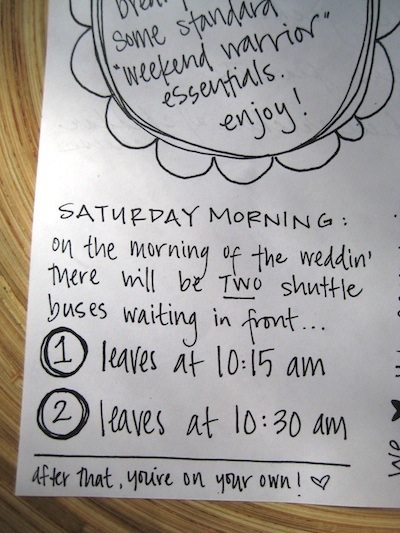 some standard
"weekend warrior"
essentials.
enjoy!
SATURDAY MORNING:
on the morning of the weddin'
there will be TWO shuttle
buses waiting in front...
1 leaves at 10:15 am
2 leaves at 10:30 am
after that, you're on your own! ♡
We